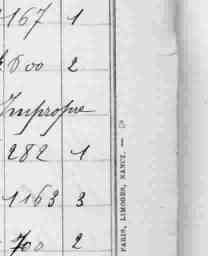 167 1
600 2
Impropre
282 1
1163 3
700 2
PARIS, LIMOGES, NANCY. —